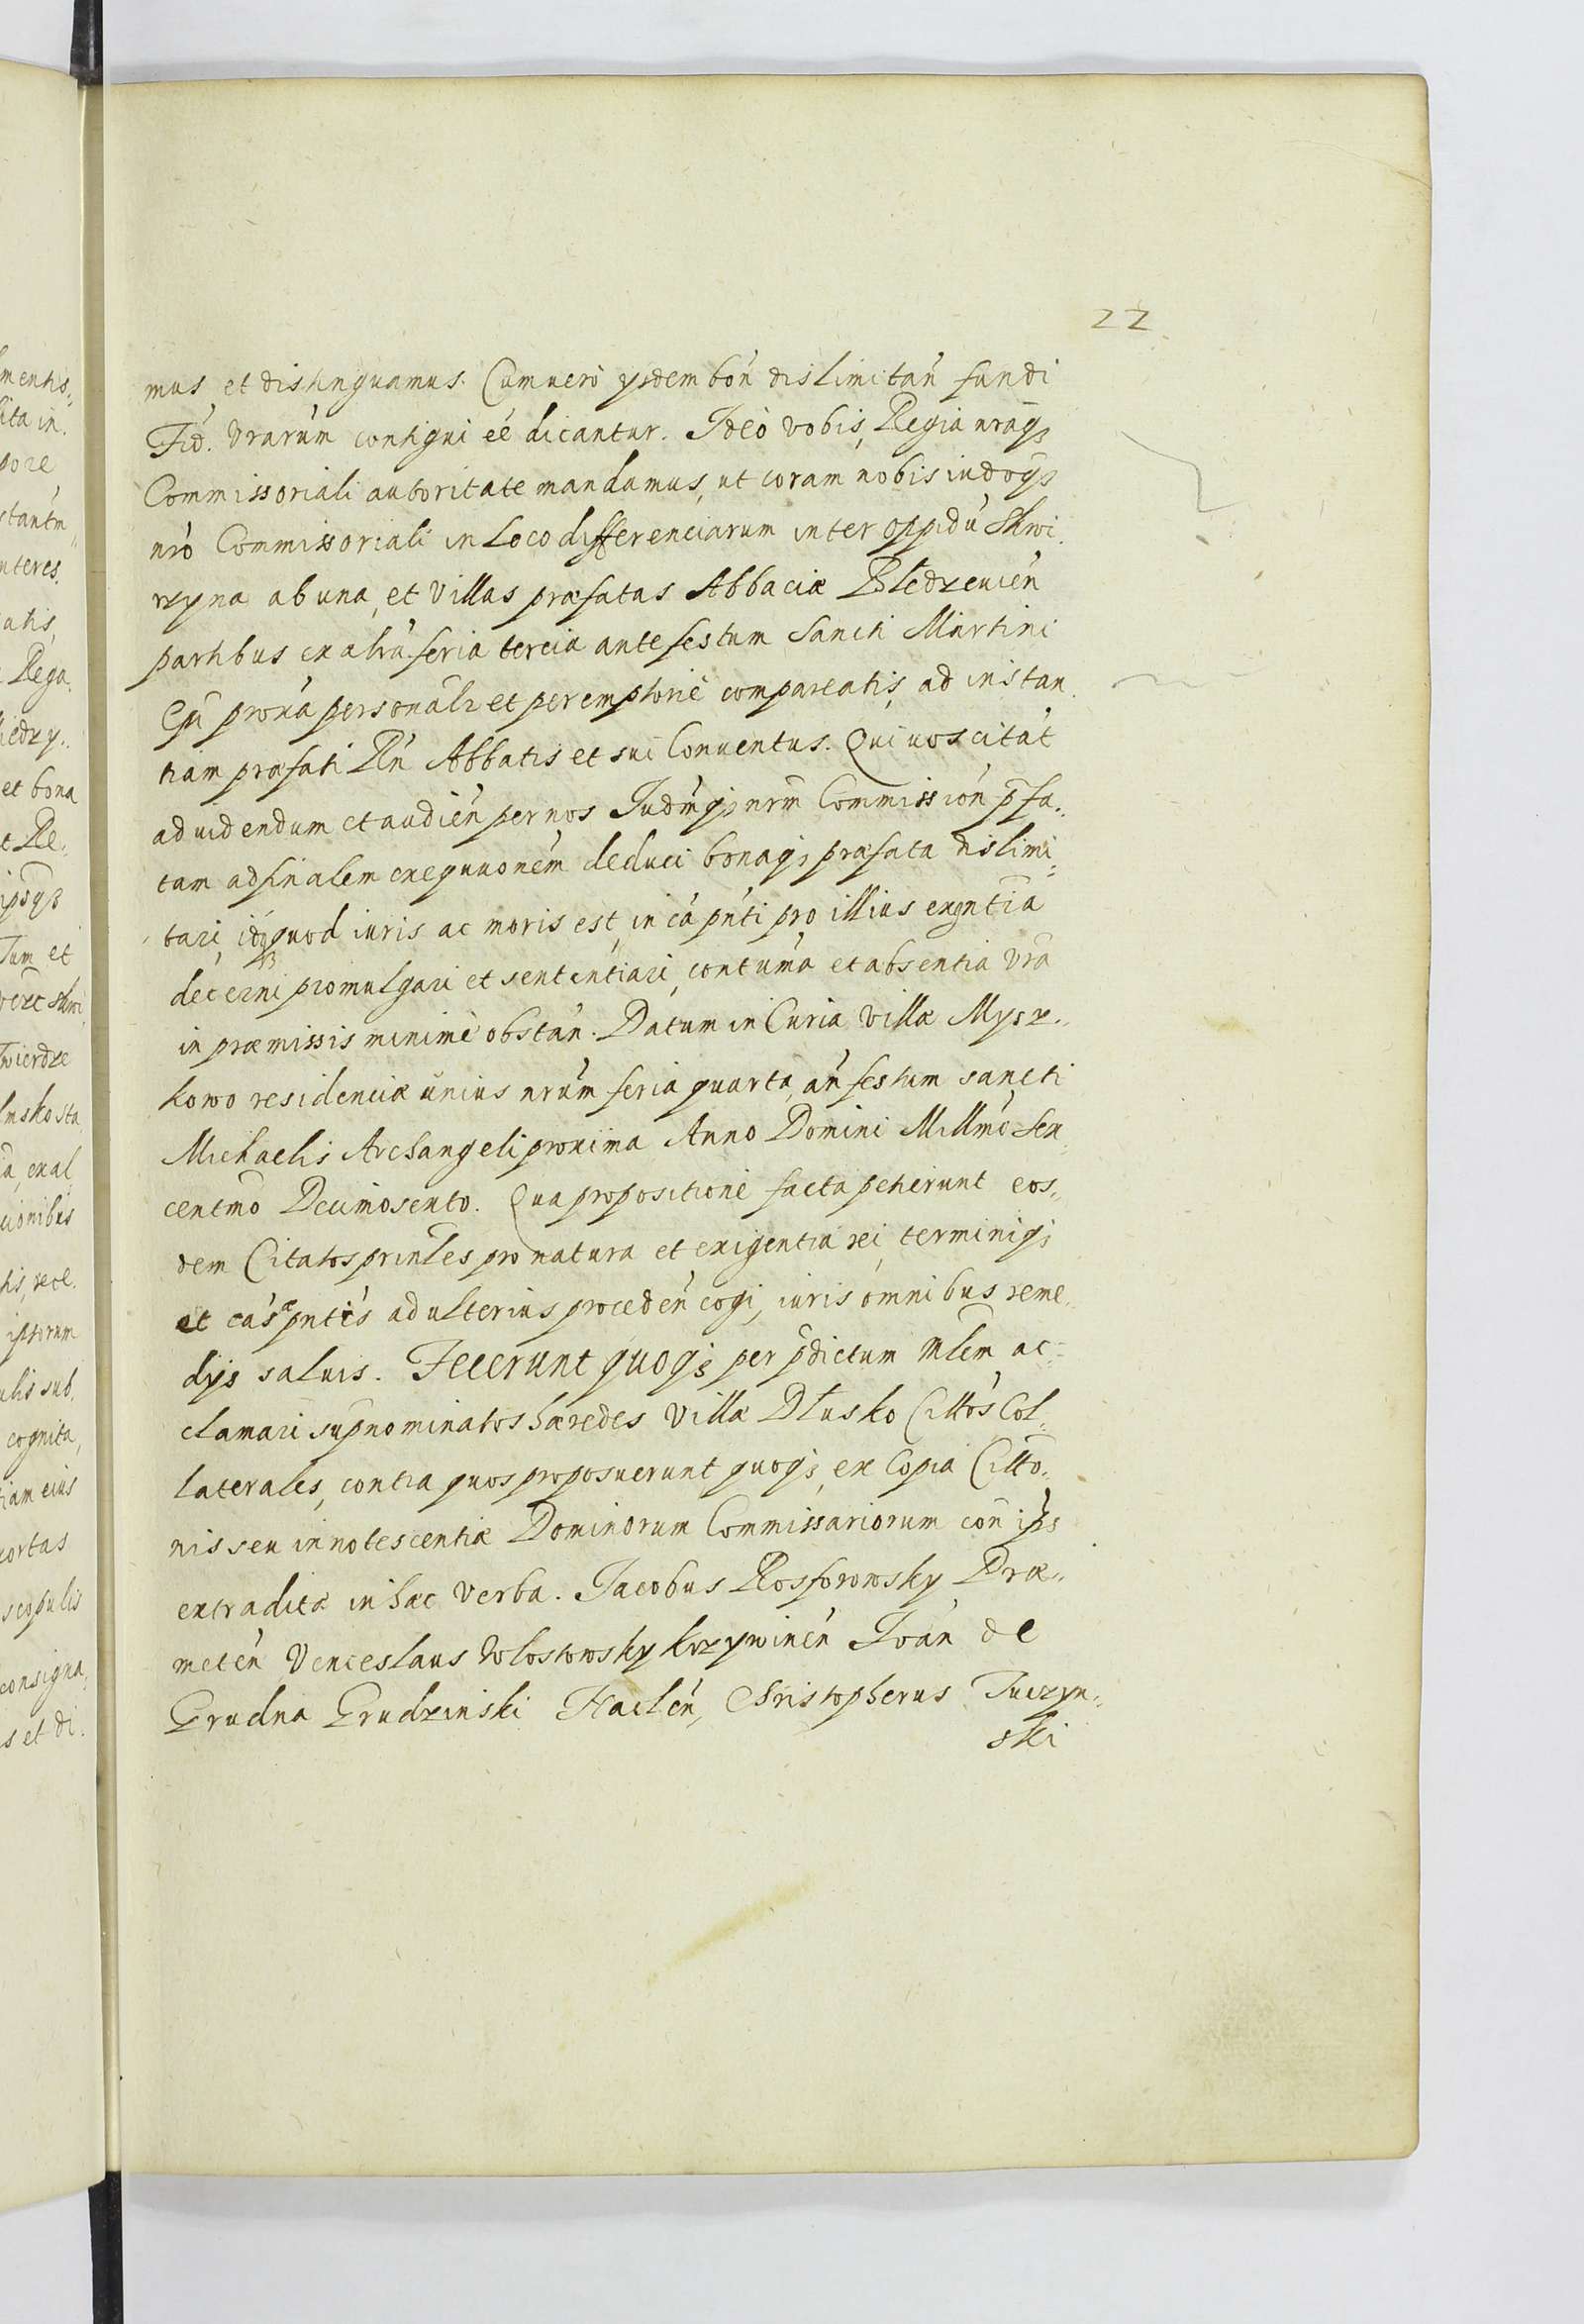 22
mus, et distinguamus. Cum verò ysdem bon̄ dislimitan̄ fundi
Fid. Vrarūm contigui eē dicantur. Ideò vobis, Regia nrāqȝ
Commissoriali autoritate mandamus, ut coram nobis
nrō Commissoriali in Loco differenciarum inter oppidū Skwi.
rzyna ab una, et Villas præfatas Abbaciæ Bledzeuien̄
partibus ex altrā. feria tercia ante festum Sancti Martini
Ep̄i proxā personalr et peremptoriè compareatis, ad instan.
tiam præfati Rn̄ Abbatis et sui Conuentus. Qui uos citāt
ad uidendum et audien̄ per nos nrm̄ Commission̄ p̄fa..
tam ad finalem exequuonēm deduci bonaqȝ præfata dislimi=
tari, idqȝ quod iuris ac moris est, in cā pn̄ti pro illius exgn̄tia
decerni promulgari et sententiari, contumā et absentia Vrā
in præmissis minimè obstan̄. Datum in Curia Villæ Mysz..
kowo residenciæ unius nrūm feria quarta, an̄ festum sancti
Michaelis Archangeli proxima Anno Domini Millmō Sex
centmō Decimosexto. Qua propositionè facta petierunt eos..
dem Citatos prin̄les pro natura et exigentia rei, terminiqȝ
et cās pn̄tis ad ulterius proceden̄ cogi, iuris omnibus reme..
dys saluis. Fecerunt quoqȝ per p̄dictum Mlem ac=
clamari sup̄nominatos hæredes Villæ Dłusko Cittōs Col..
laterales, contra quos proposuerunt quoqȝ, ex Copia Citto..
nis seu innotescentiæ Dominorum Commissariorum con ip̄s
extraditæ in hæc Verba. Jacobus Rosforowsky Præ..
meten̄ Venceslaus Wlostowsky Krzywinen̄ Joān de
Grudna Grudzinski Naclen̄, Christopherus Tuczyn..
ski